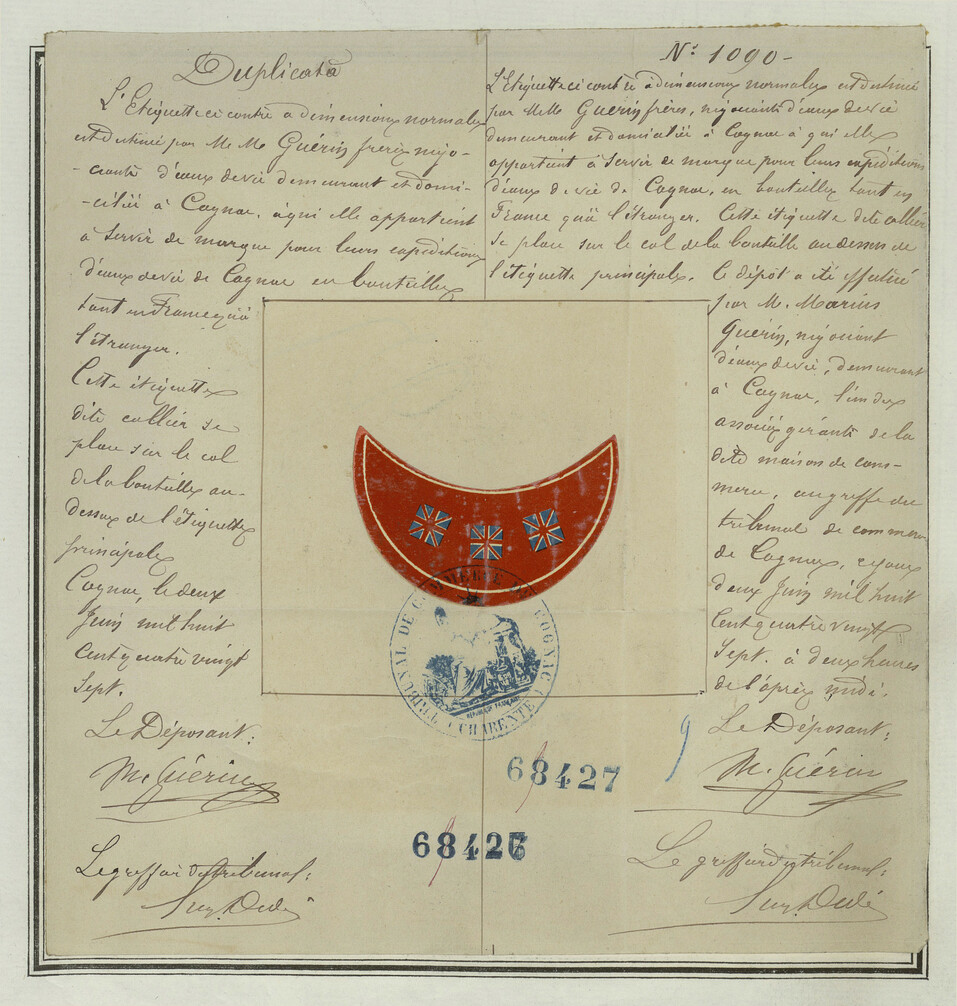 Duplicata
L'Etiquette ci contre à dimensions normales
est destinée par M. Mrs Guérin frères négo-
-ciants d'eaux de vie demeurant et domi-
-ciliés à Cognac, à qui elle appartient
à servir de marque pour leurs expéditions
d'eaux de vie de Cognac en bouteilles
tant en France qu'à
l'étranger.
Cette étiquette
dite collier se
place sur le col
de la bouteille au-
dessus de l'étiquette
principale
Cognac, le deux
Juin mil huit
cent quatre vingt
sept.
Le Déposant:
M. Guérin
Le greffier du tribunal:
N° 1090-
L'Etiquette ci contre à dimensions normales est destinée
par M.Mrs Guérin frères, négociants d'eaux de vie
demeurant et domiciliés à Cognac à qui elle
appartient à servir de marque pour leurs expéditions
d'eaux de vie de Cognac, en bouteilles tant en
France qu'à l'étranger. Cette étiquette dite collier
se place sur le col de la bouteille au dessus de
l'étiquette principale. Le dépôt a été effectué
par M. Marius
Guérin, négociant
d'eaux de vie, demeurant
à Cognac, l'un des
associés gérants de la
dite maison de com-
merce, au greffe du
tribunal de commerce
de Cognac, ce jour
deux Juin mil huit
cent quatre vingt
sept. à deux heures
de l'après midi.
Le Déposant:
M. Guérin
Le greffier du tribunal:
TRIBUNAL DE COMMERCE DE COGNAC
(CHARENTE)
RÉPUBLIQUE FRANÇAISE
9
68427
6842